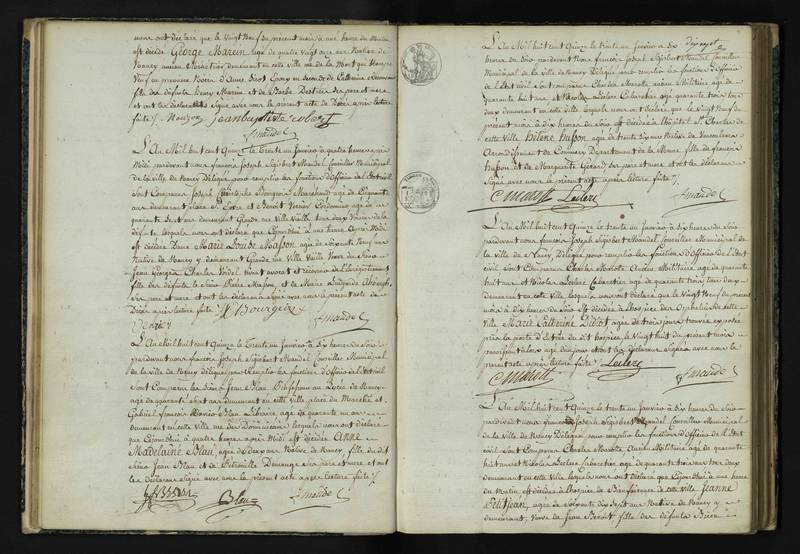 nous ont déclaré que le Vingt Neuf du présent mois à une heure du Matin
est décédé George Marcin agé de quatre Vingt onze ans Natif de
Nancy
fille des défunts Henry Marcin et de Barbe
et ont les déclarants Signé avec nous le présent acte de Décès après lecture
faite /. Jean baptiste
f. mandel
L'An Mil huit cent Quinze le trente un Janvier à quatre heures après
Midi pardevant nous françois Joseph Sigisbert Mandel Conseiller Municipal
de la ville de Nancy Délégué pour remplir les fonctions d'officier de l'Etat civil
Sont Comparus Joseph Christophe Bourgeois Marchand agé de Cinquante
ans demeurant et Benoit Cordonnier agé de
quarante Sept ans demeurant Grande rue Ville Vieille tous deux Voisins de la
défunte lesquels nous ont déclaré que Ejourdhui à une heure Après Midi
est décédée Dame Marie Louise Masson agée de Soixante Neuf ans
Native de Nancy y demeurant Grande rue Ville Vieille Veuve du Sieur
Jean George Charles Avocat et receveur de l'Enregistrement
fille des défunts le Sieur Pierre Masson et de Marie
Ses père et mère et ont les déclarants Signé avec nous le présent acte de
Décès après lecture faite /. Bourgeois
f. mandel
L'An Mil huit cent Quinze le trente un Janvier à Six heures du Soir
pardevant nous françois Joseph Sigisbert Mandel Conseiller Municipal
de la Ville de Nancy Délégué pour remplir les fonctions d'officier de l'Etat civil
Sont Comparus les Sieurs Jean Blau Professeur au Lycée de Nancy
agé de quarante ans demeurant en cette Ville place du Marché et
Gabriel françois Xavier Blau Libraire agé de quarante un ans
demeurant en cette Ville rue des Dominicains lesquels nous ont déclaré
que Ejourdhui à quatre heures après Midi est décédée Anne
Madelaine Blau agée de ans Native de Nancy, fille du dit
Sieur Jean Blau et de Pétronille Demange Ses père et mère et ont
les déclarans Signé avec nous le présent acte après lecture faite /.
Blau f. mandel
L'An Mil huit cent Quinze le trente un Janvier à Six
heures du Soir pardevant nous françois Joseph Sigisbert Mandel Conseiller
Municipal de la Ville de Nancy Délégué pour remplir les fonctions d'officier
de l'Etat civil Sont Comparus Charles Marotte ancien Militaire agé de
quarante huit ans et Nicolas Leclerc Cabaretier agé de quarante trois ans
tous deux demeurant en cette Ville lesquels nous ont déclaré que le Vingt Neuf du
présent mois à Six heures du Soir est décédée à l'hôpital St Charles de
cette Ville Hélène Husson agée de trente Six ans Native de
Arrondissement de Commercy Département de la Meuse fille de françois
Husson et de Marguerite Gérard Ses père et mère et ont les déclarans
Signé avec nous le présent acte après lecture faite /.
C Marotte Leclerc f. mandel
L'An Mil huit cent Quinze le trente un Janvier à Six heures du Soir
pardevant nous françois Joseph Sigisbert Mandel Conseiller Municipal de
la Ville de Nancy Délégué pour remplir les fonctions d'officier de l'Etat
civil Sont Comparus Charles Marotte Ancien Militaire agé de quarante
huit ans et Nicolas Leclerc Cabaretier agé de quarante trois ans tous deux
demeurant en cette Ville lesquels nous ont déclaré que le Vingt Neuf du présent
mois à dix heures du Soir est décédée à l'hospice des Orphelins de cette
Ville Marie Catherine Didiot agée de trois jours trouvée exposée
près la porte d'Entrée du dit hospice le Vingt huit du présent mois
paroissant alors agée d'un jour et ont les déclarans Signé avec nous le
présent acte après lecture faite /.
C Marotte Leclerc f. mandel
L'An Mil huit cent Quinze le trente un Janvier à Six heures du Soir
pardevant nous françois Joseph Sigisbert Mandel Conseiller Municipal
de la Ville de Nancy Délégué pour remplir les fonctions d'officier de l'Etat
civil Sont Comparus Charles Marotte Ancien Militaire agé de quarante
huit ans et Nicolas Leclerc Cabaretier agé de quarante trois ans tous deux
demeurant en cette Ville lesquels nous ont déclaré que Ejourdhui à une heure
du Matin est décédée à l'hospice de Bienfaisance de cette Ville Jeanne
Petitjean, agée de Soixante dix Sept ans Native de Nancy y
demeurant, Veuve de Jean Benoit fille des défunts